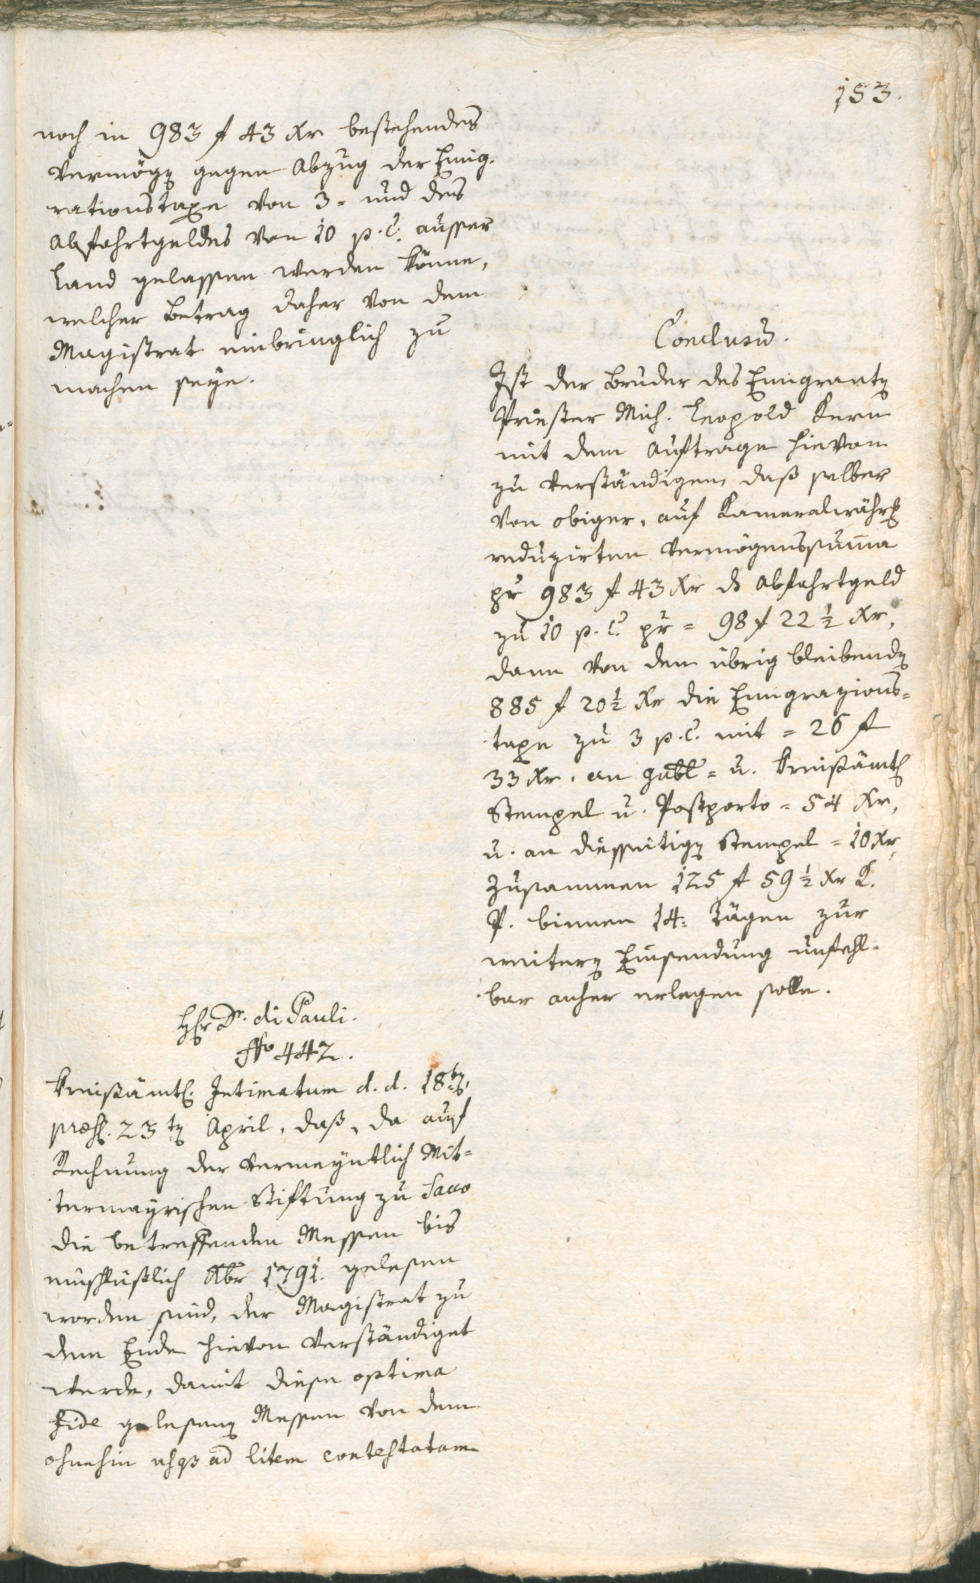 153.
noch in 983 f 43 Xr bestehendes
Vermögen gegen Abzug der Emig-
rationstaxe von 3 = und des
Abfahrtgeldes von 10 p. C. ausser
Land gelassen werden könne,
welcher Betrag daher von dem
Magistrat einbringlich zu
machen seye.
Conclusum.
Ist der Bruder des Emigranten
Priester Mich. Leopold Kern
mit dem Auftrage hievon
zu verständigen, daß selber
von obiger, auf Kameralwährung
reduzirten Vermögenssumma
pr 983 f 43 Xr ds Abfahrtgeld
zu 10 p. C. pr = 98 f 22 ½ Xr,
dann von dem übrig bleibenden
885 f 20 ½ Xr die Emigrazions=
taxe zu 3 p. C. mit = 26 f
33 Xr, an Gubl = u. Kreisämtl
Stempel u. Postporto = 54 Xr,
u. an diesseitigen Stempel = 10 Xr,
zusammen 125 f 59 ½ Xr K.
P. binnen 14: Tägen zur
weitern Einsendung unfehl-
bar anher erlegen solle.
Hr Dr. di Pauli.
No 442.
Kreisämtl. Intimatum d. d. 18ten,
præs. 23ten April, daß, da auf
Rechnung der vermeyntlich Mit=
termayrischen Stiftung zu Sacco
die betreffenden Messen bis
einschlüßlich Xbr 1791. gelesen
worden sind, der Magistrat zu
dem Ende hievon verständiget
werde, damit diese optima
fide gelesenen Messen von dem
ohnehin usque ad litem contestatam